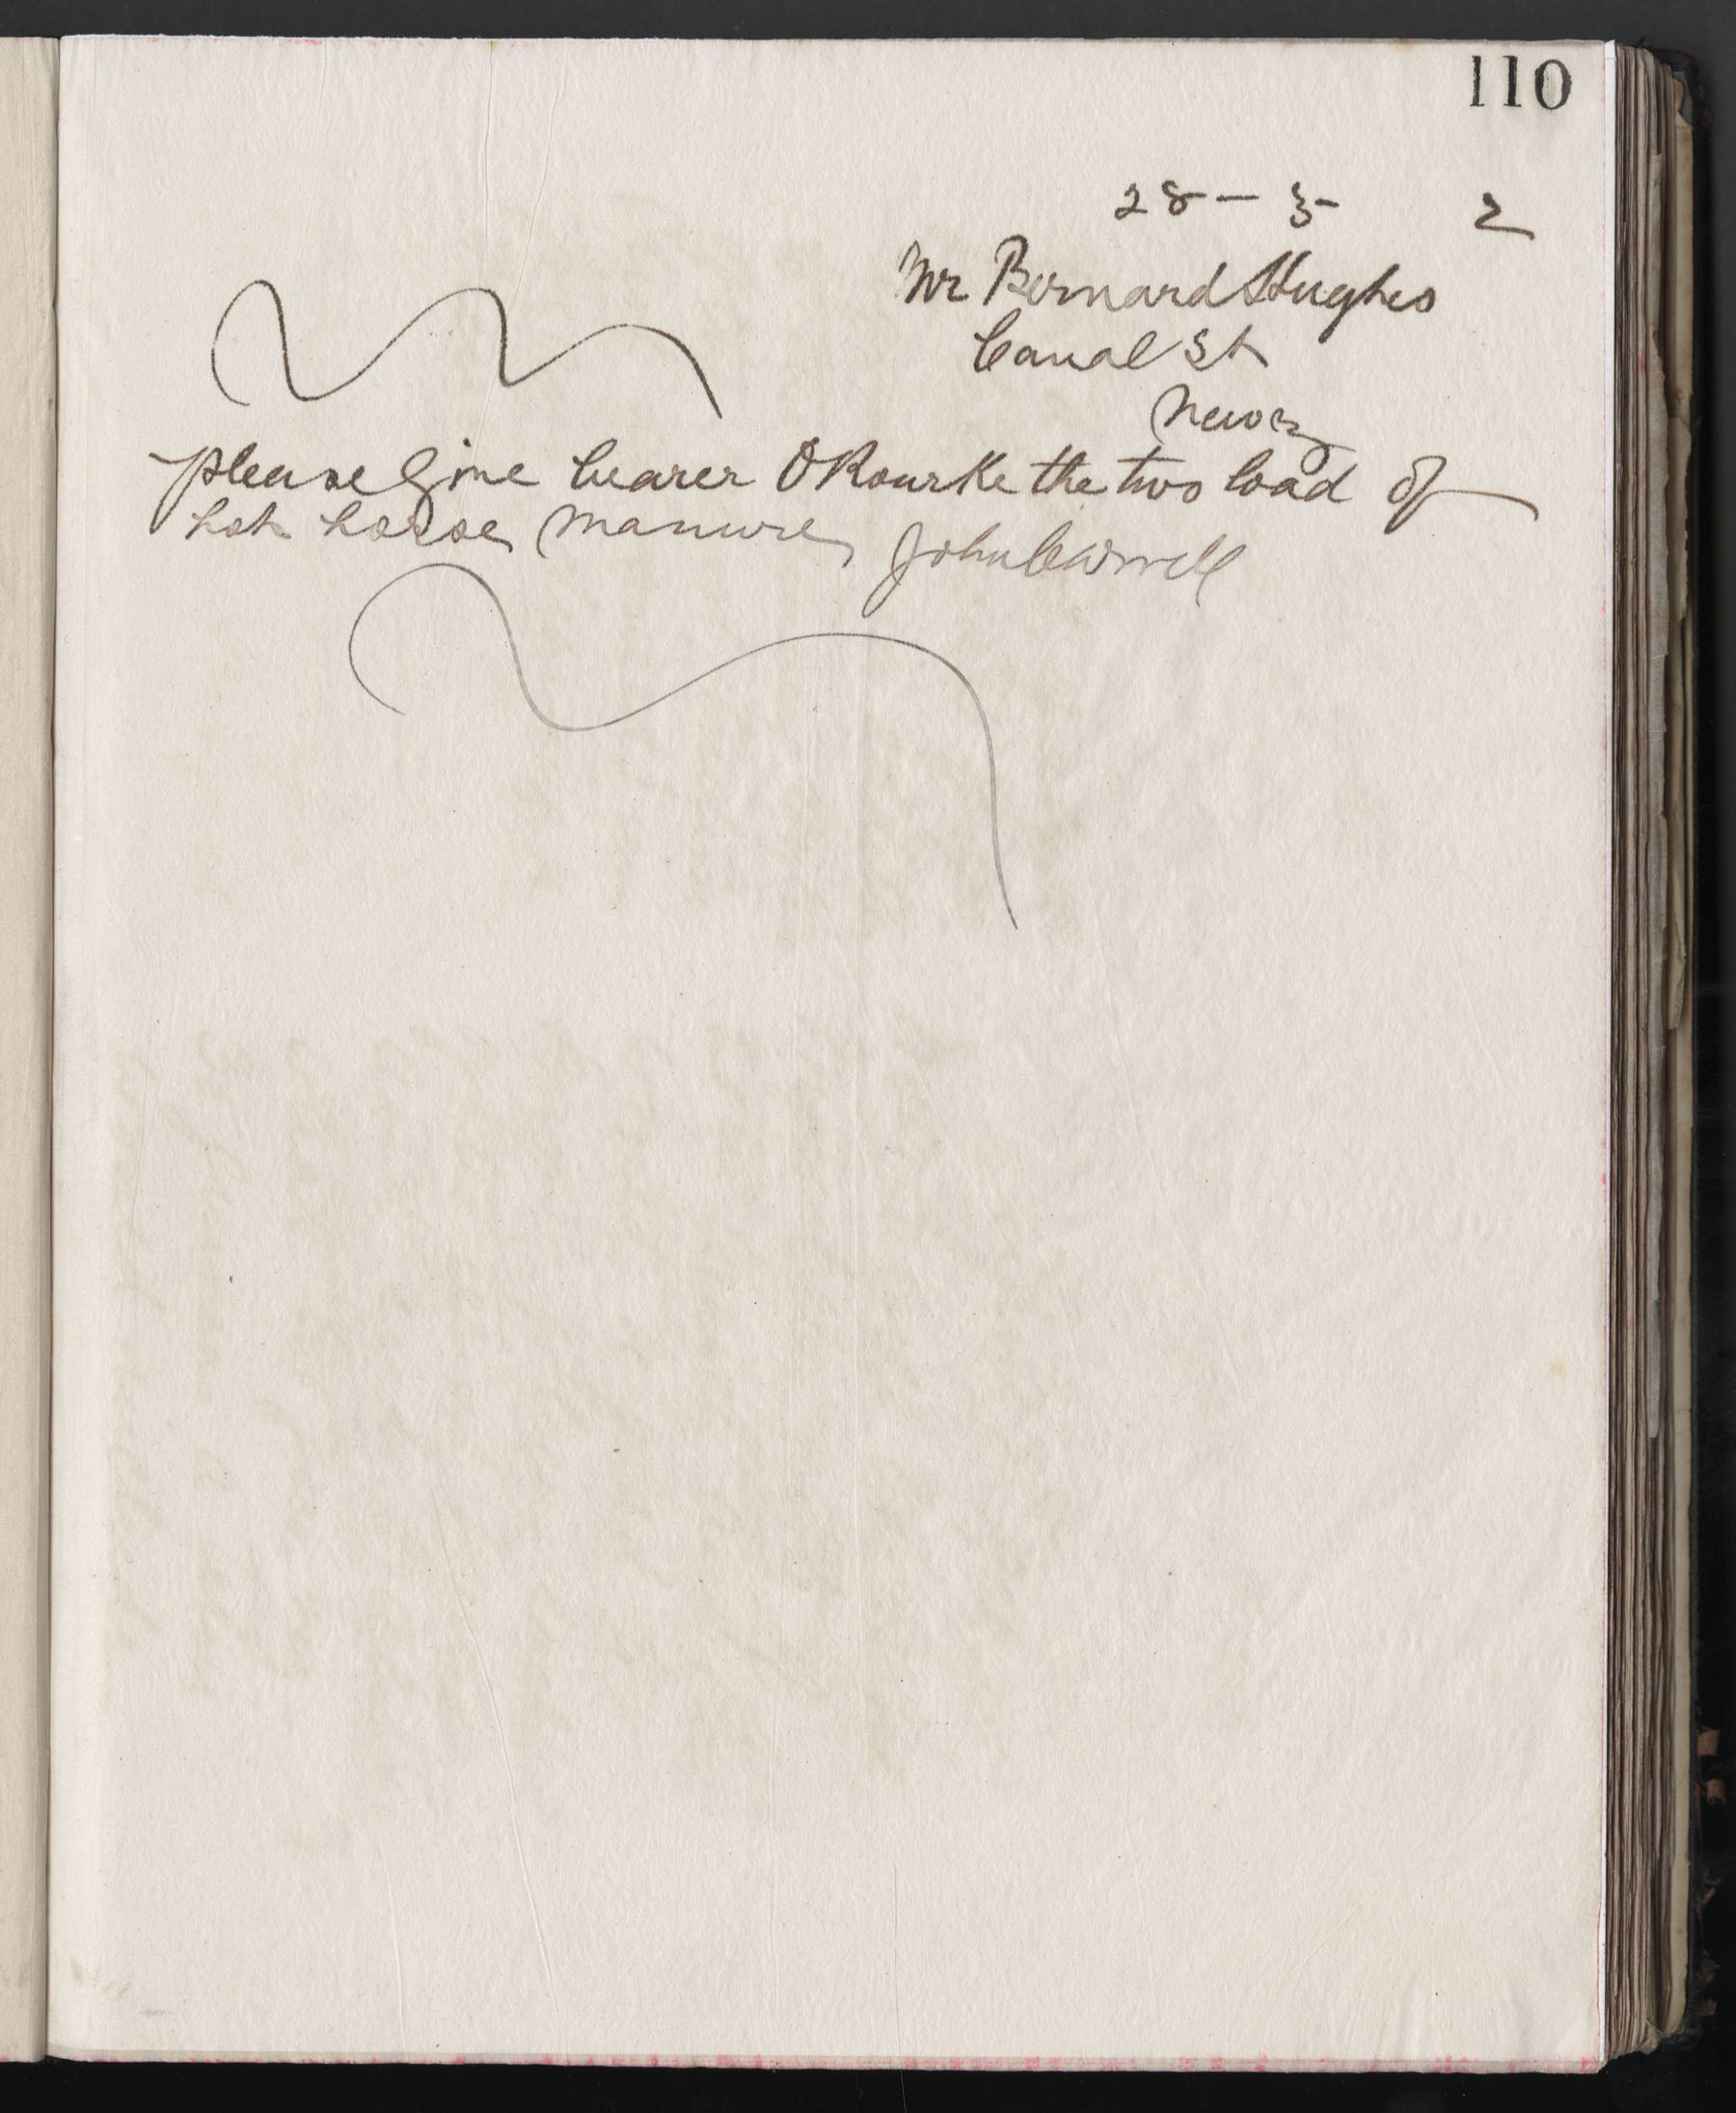 110
28 - 5 2
Mr Bernard Hughes
Canal St
Newry
please Give bearer O Rourke the two load of
hot horse manure John